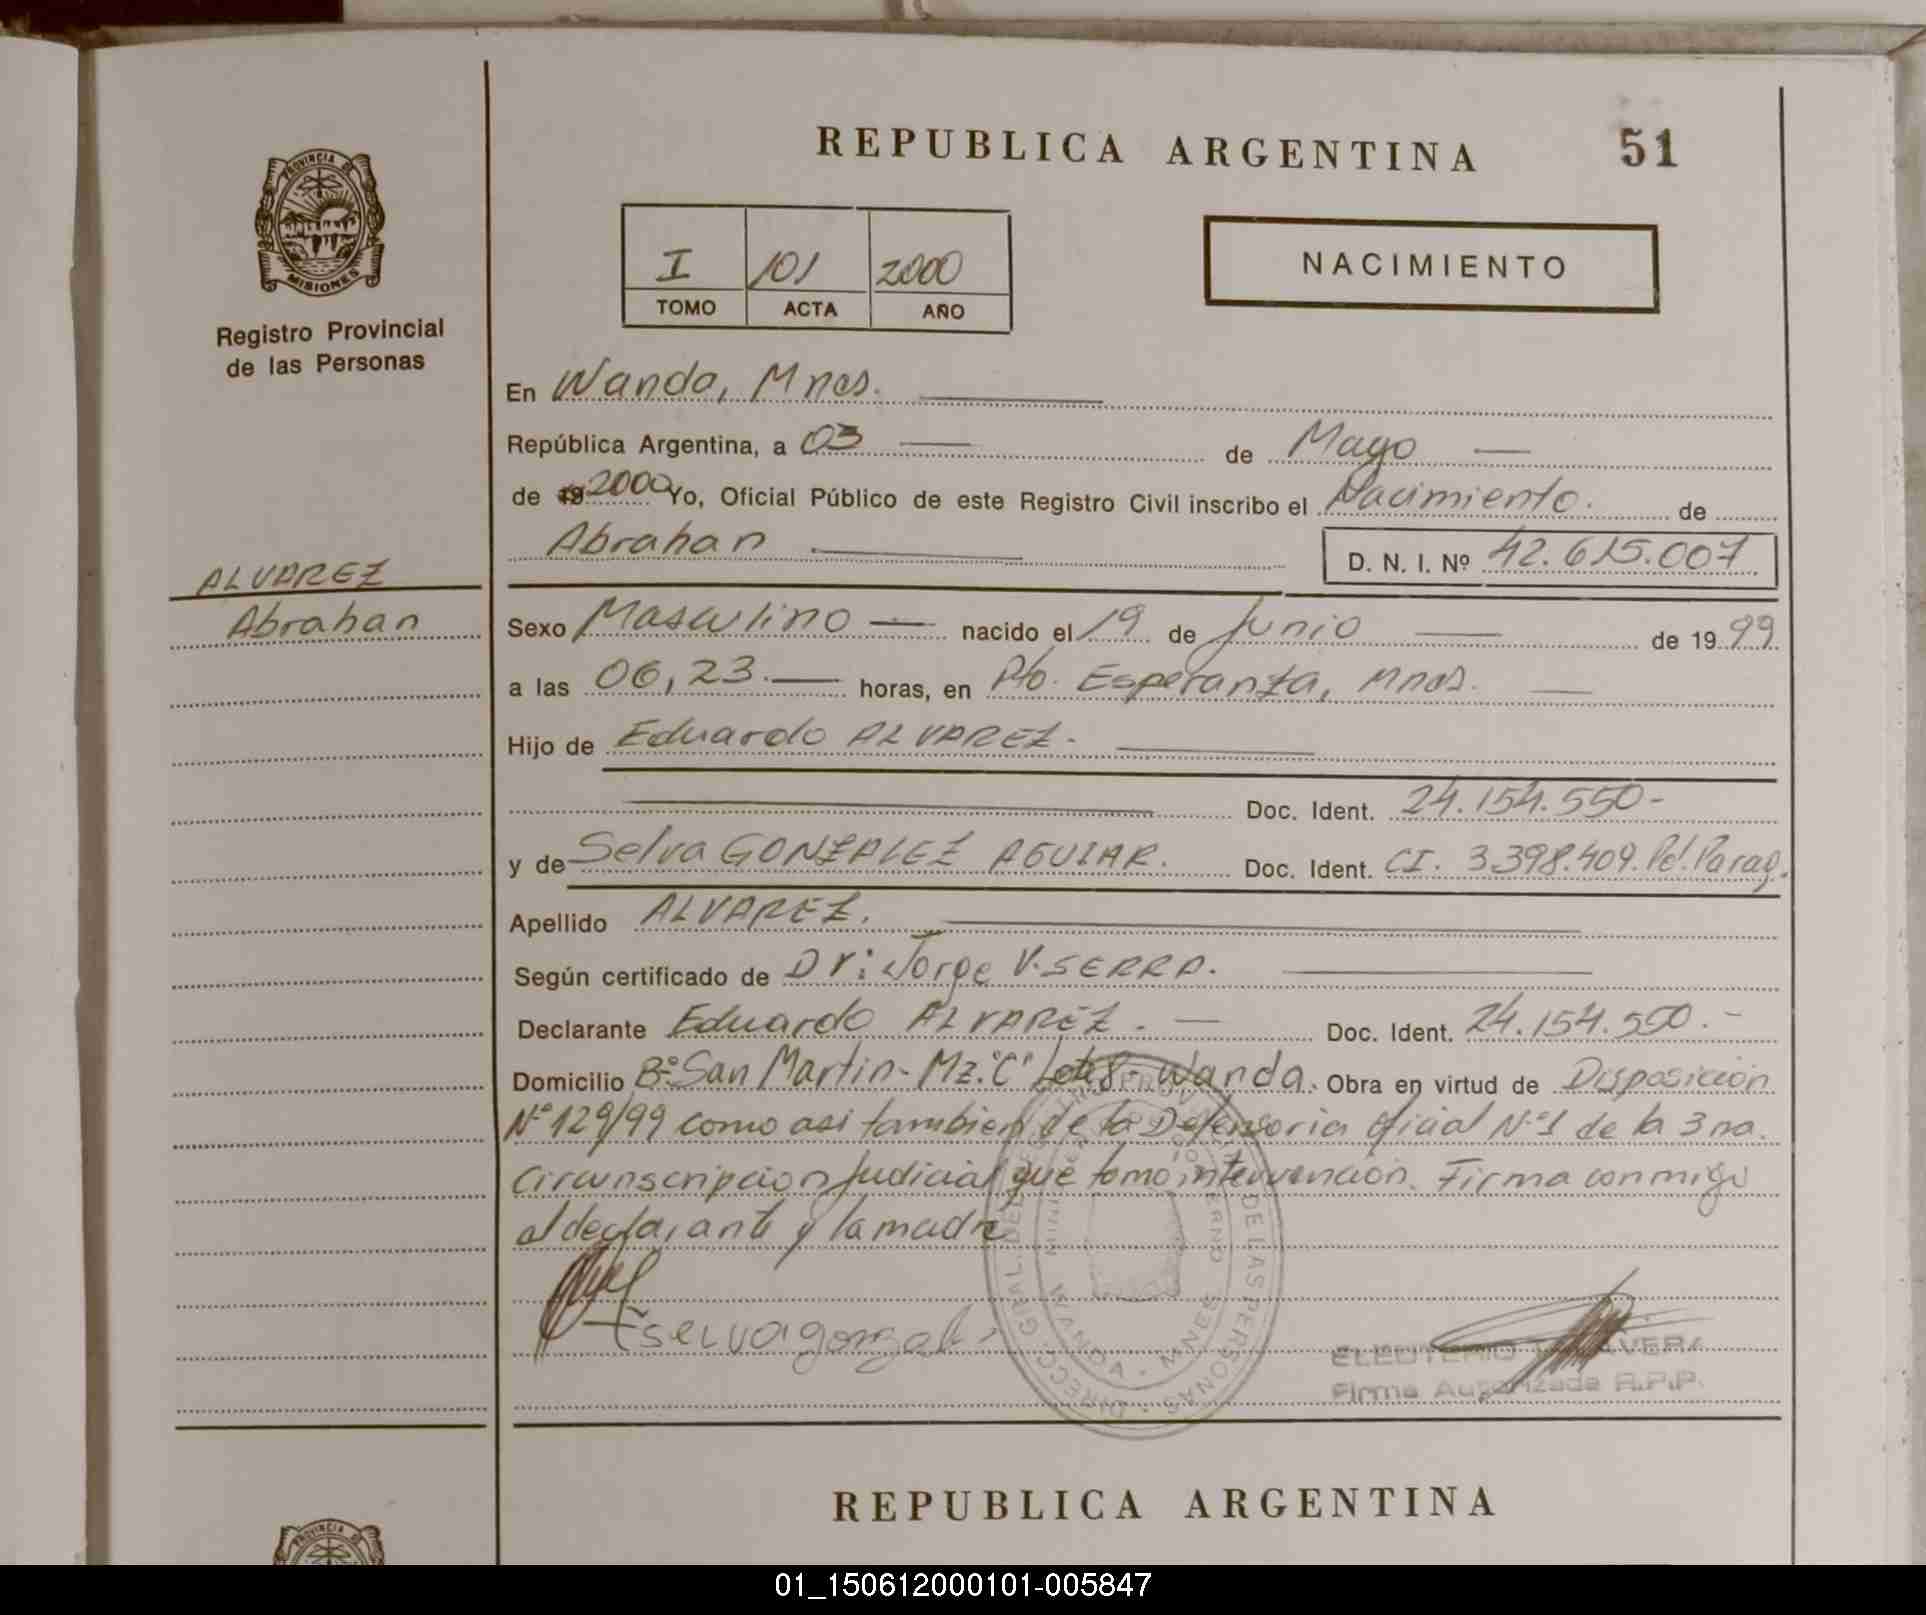 REPUBLICA ARGENTINA 51
PROVINCIA DE
MISIONES
Registro Provincial
de las Personas
I 101 2000
TOMO ACTA AÑO
NACIMIENTO
En Wanda, Mnes.
República Argentina, a 03 de Mayo
de 19 2000 Yo, Oficial Público de este Registro Civil inscribo el Nacimiento. de
Abrahan D. N. I. Nº 42.615.007
ALVAREZ
Abrahan
Sexo Masculino nacido el 19 de Junio de 19 99
a las 06,23. horas, en Pto. Esperanza, Mnes.
Hijo de Eduardo ALVAREZ.
Doc. Ident. 24.154.550-
y de Selva GONZALEZ AGUIAR. Doc. Ident. CI. 3.398.409. Pol. Parag.
Apellido ALVAREZ.
Según certificado de Dr: Jorge V. SERRA.
Declarante Eduardo ALVAREZ. Doc. Ident. 24.154.550.-
Domicilio Bº San Martin- Mz. "C" Lote 8- Wanda. Obra en virtud de Disposición
Nº 129/99 como asi tambien de la Defensoria oficial Nº 1 de la 3 ra.
Circunscripcion Judicial que tomo intervencion. Firma conmigo
el declarante y la madre
selva gonzal
ELEUTERIO
Firma Autorizada R.P.P.
DIRECC. GRAL. DEL DE LAS PERSONAS
WANDA - MNES
REPUBLICA ARGENTINA
PROVINCIA DE
01_150612000101-005847